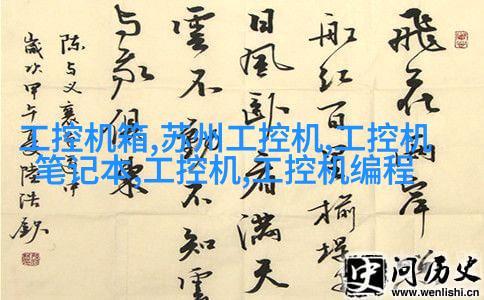 飛花兩岸
船紅百里榆堤
日風臥看滿天
雲不動不知雲
与我俱東
陈与义襄邑道中
歲次甲午夏陸浩
工控机箱,苏州工控机,工控机
笔记本,工控机,工控机编程
史问历史
www.wenlishi.cn